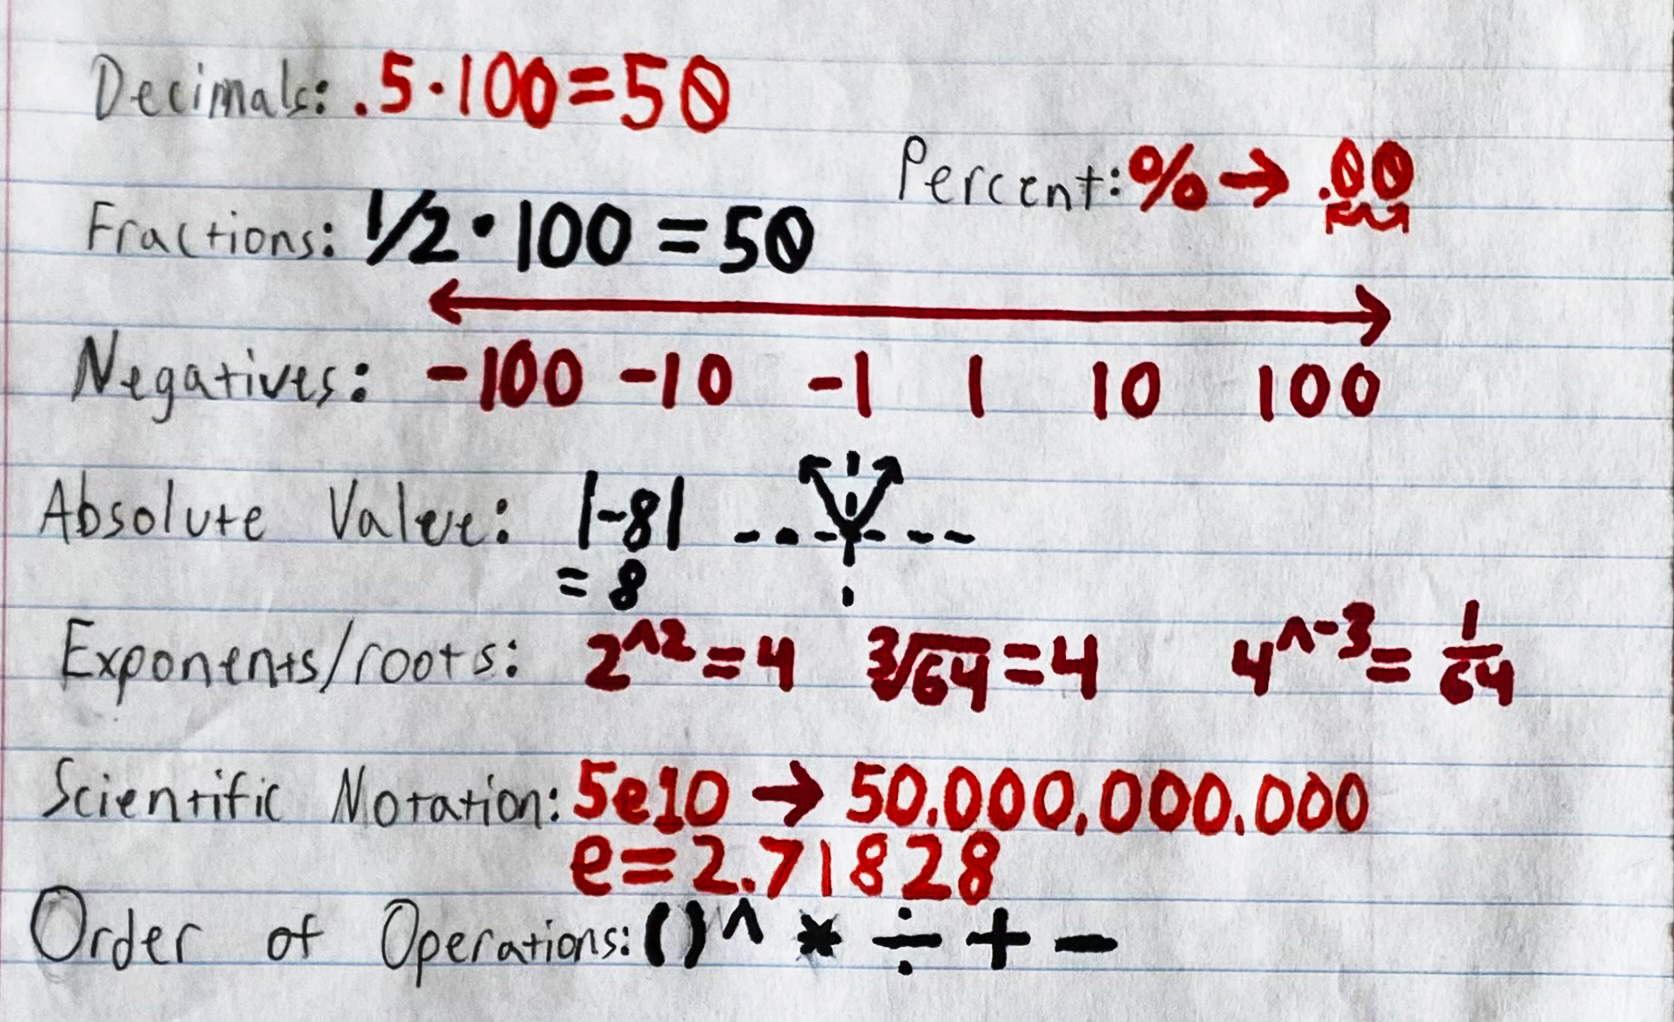 Decimals: .5·100=50
Percent: % → .00
Fractions: 1/2·100=50
Negatives: -100 -10 -1 1 10 100
Absolute Value: |-8|
= 8
Exponents/roots: 2^2=4 ∛64=4 4^-3= 1/64
Scientific Notation: 5e10 → 50,000,000,000
e=2.71828
Order of Operations: () ^ * ÷ + -